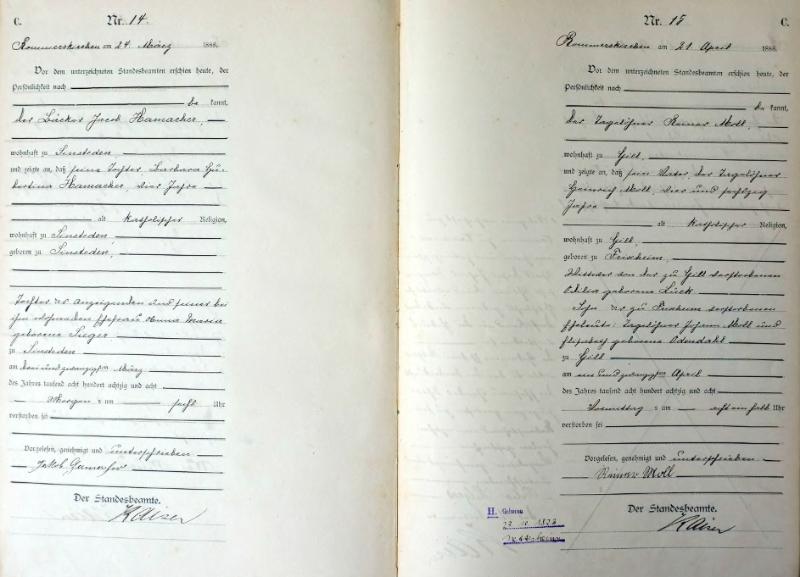 C. Nr. 14
Rommerskirchen am 24 März 1888.
Vor dem unterzeichneten Standesbeamten erschien heute, der
Persönlichkeit nach
be kannt,
der Bäcker Jacob Hamacher,
wohnhaft zu Sinsteden
und zeigte an, daß seine Tochter, Barbara Hu-
bertina Hamacher, vier Jahre
alt katholischer Religion,
wohnhaft zu Sinsteden,
geboren zu Sinsteden,
Tochter des Anzeigenden und seiner bei
ihm wohnenden Ehefrau Anna Maria
geborene Sieger
zu Sinsteden
am drei und zwanzigsten März
des Jahres tausend acht hundert achtzig und acht
Morgens um sechs Uhr
verstorben sei
Vorgelesen, genehmigt und unterschrieben
Jakob Hamacher
Der Standesbeamte.
Kaiser
Nr. 15 C.
Rommerskirchen am 21 April 1888.
Vor dem unterzeichneten Standesbeamten erschien heute, der
Persönlichkeit nach
be kannt,
der Tagelöhner Reiner Moll,
wohnhaft zu Gill,
und zeigte an, daß sein Vater, der Tagelöhner
Heinrich Moll, vier und sechszig
Jahre
alt katholischer Religion,
wohnhaft zu Gill,
geboren zu Frixheim,
Wittwer von der zu Gill verstorbenen
Odilia geborene Lück
Sohn der zu Frixheim verstorbenen
Eheleute: Tagelöhner Johann Moll und
Elisabeth geborene Odendahl
zu Gill
am ein und zwanzigsten April
des Jahres tausend acht hundert achtzig und acht
Vormittags um acht ein halb Uhr
verstorben sei
Vorgelesen, genehmigt und unterschrieben
Reiner Moll
Der Standesbeamte.
Kaiser
H. Geboren